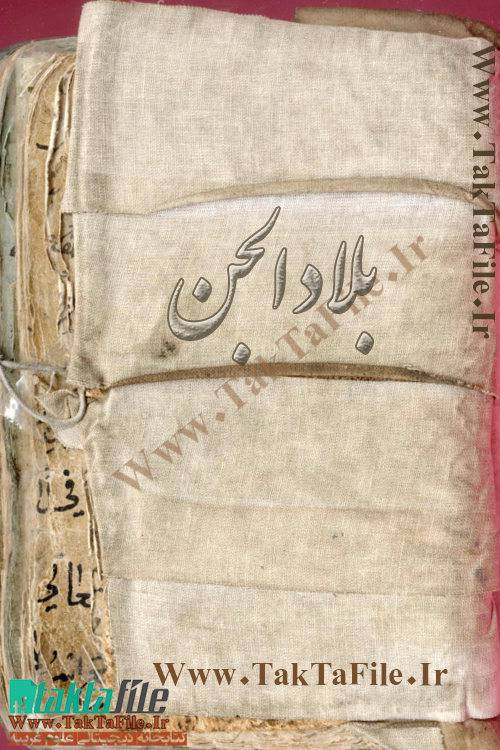 Www.TakTaFile.Ir
بلاد الجن
Www.TakTaFile.Ir
في
Www.TakTaFile.Ir
taktafile
Www.TakTaFile.Ir